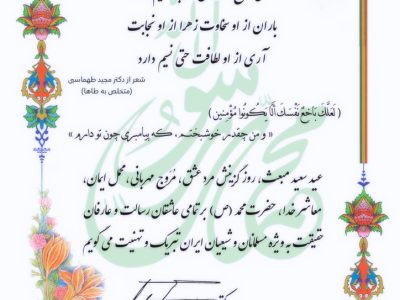 باران از او سخاوت زهرا از او نجابت
آری از او لطافت حتی نسیم دارد
شعر از دکتر مجید طهماسبی
(متخلص به طاها)
(لَعَلَّكَ بَاخِعٌ نَفْسَكَ أَلَّا يَكُونُوا مُؤْمِنِينَ)
« و من چقدر خوشبختم، که پیامبری چون تو دارم »
عید سعید مبعث، روز گزینش مرد عشق، مُروّج مهربانی، محمل ایمان،
معاشر خدا، حضرت محمد (ص) بر تمامی عاشقان رسالت و عارفان
حقیقت به ویژه مسلمانان و شیعیان ایران تبریک و تهنیت می گویم